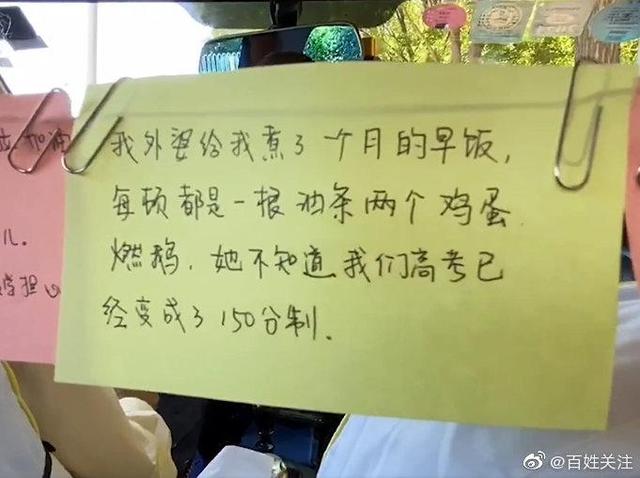 我外婆给我煮了个月的早饭,
每顿都是一根油条两个鸡蛋.
燃鹅,她不知道我们高考已
经变成了150分制.
加油
儿.
担心
@百姓关注